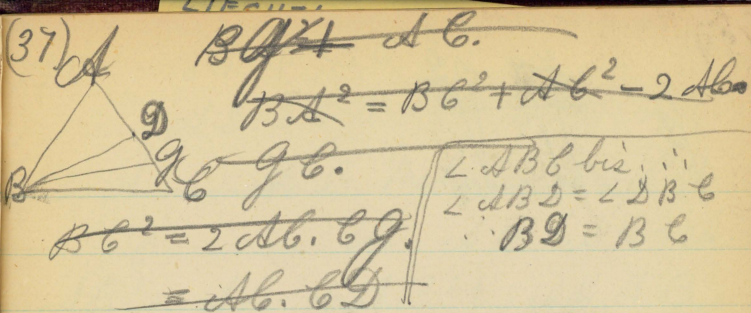 (37)
BG ⊥ AC.
A
D
G
B
C
BA² = BC² + AC² - 2 AC.
GC.
BC² = 2 AC. CG.
= AC. CD
∠ABC bis. ∴
∠ABD = ∠DBC
∴ BD = BC